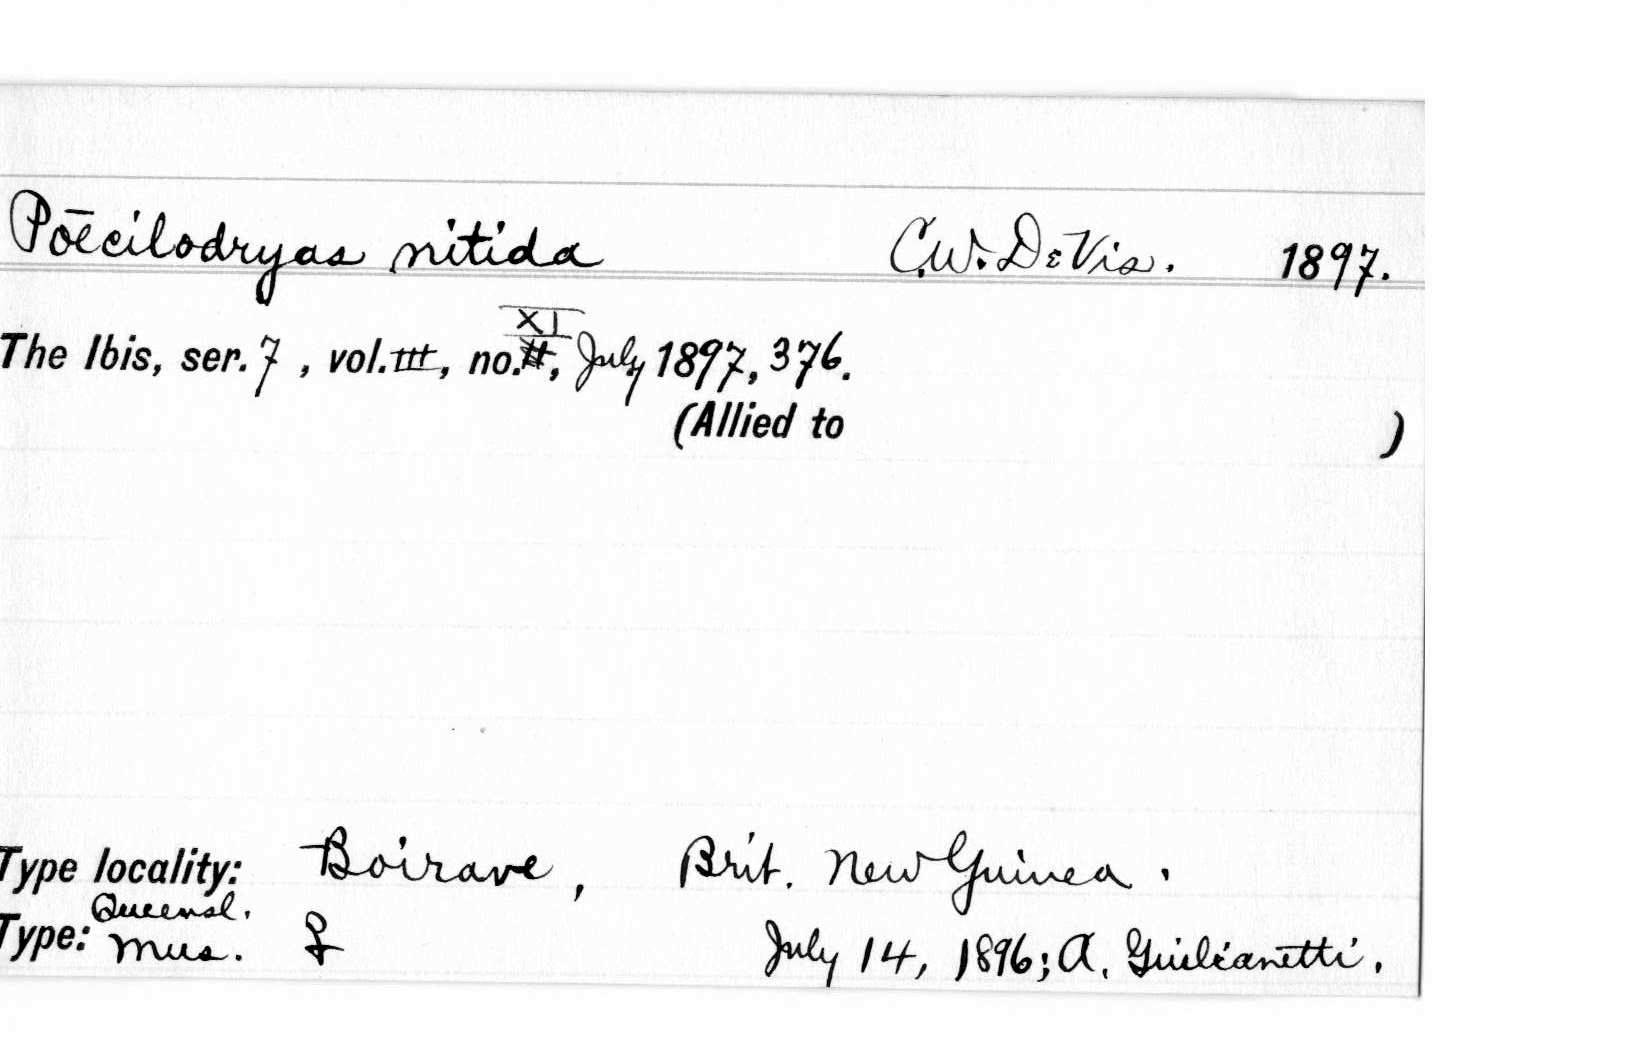 Poecilodryas nitida C.W. De Vis. 1897.
The Ibis, ser. 7, vol. III, no. XI, July 1897, 376.
(Allied to )
Type locality: Boirave, Brit. New Guinea.
Type: Queensl. Mus. ♀ July 14, 1896; A. Giulianetti.